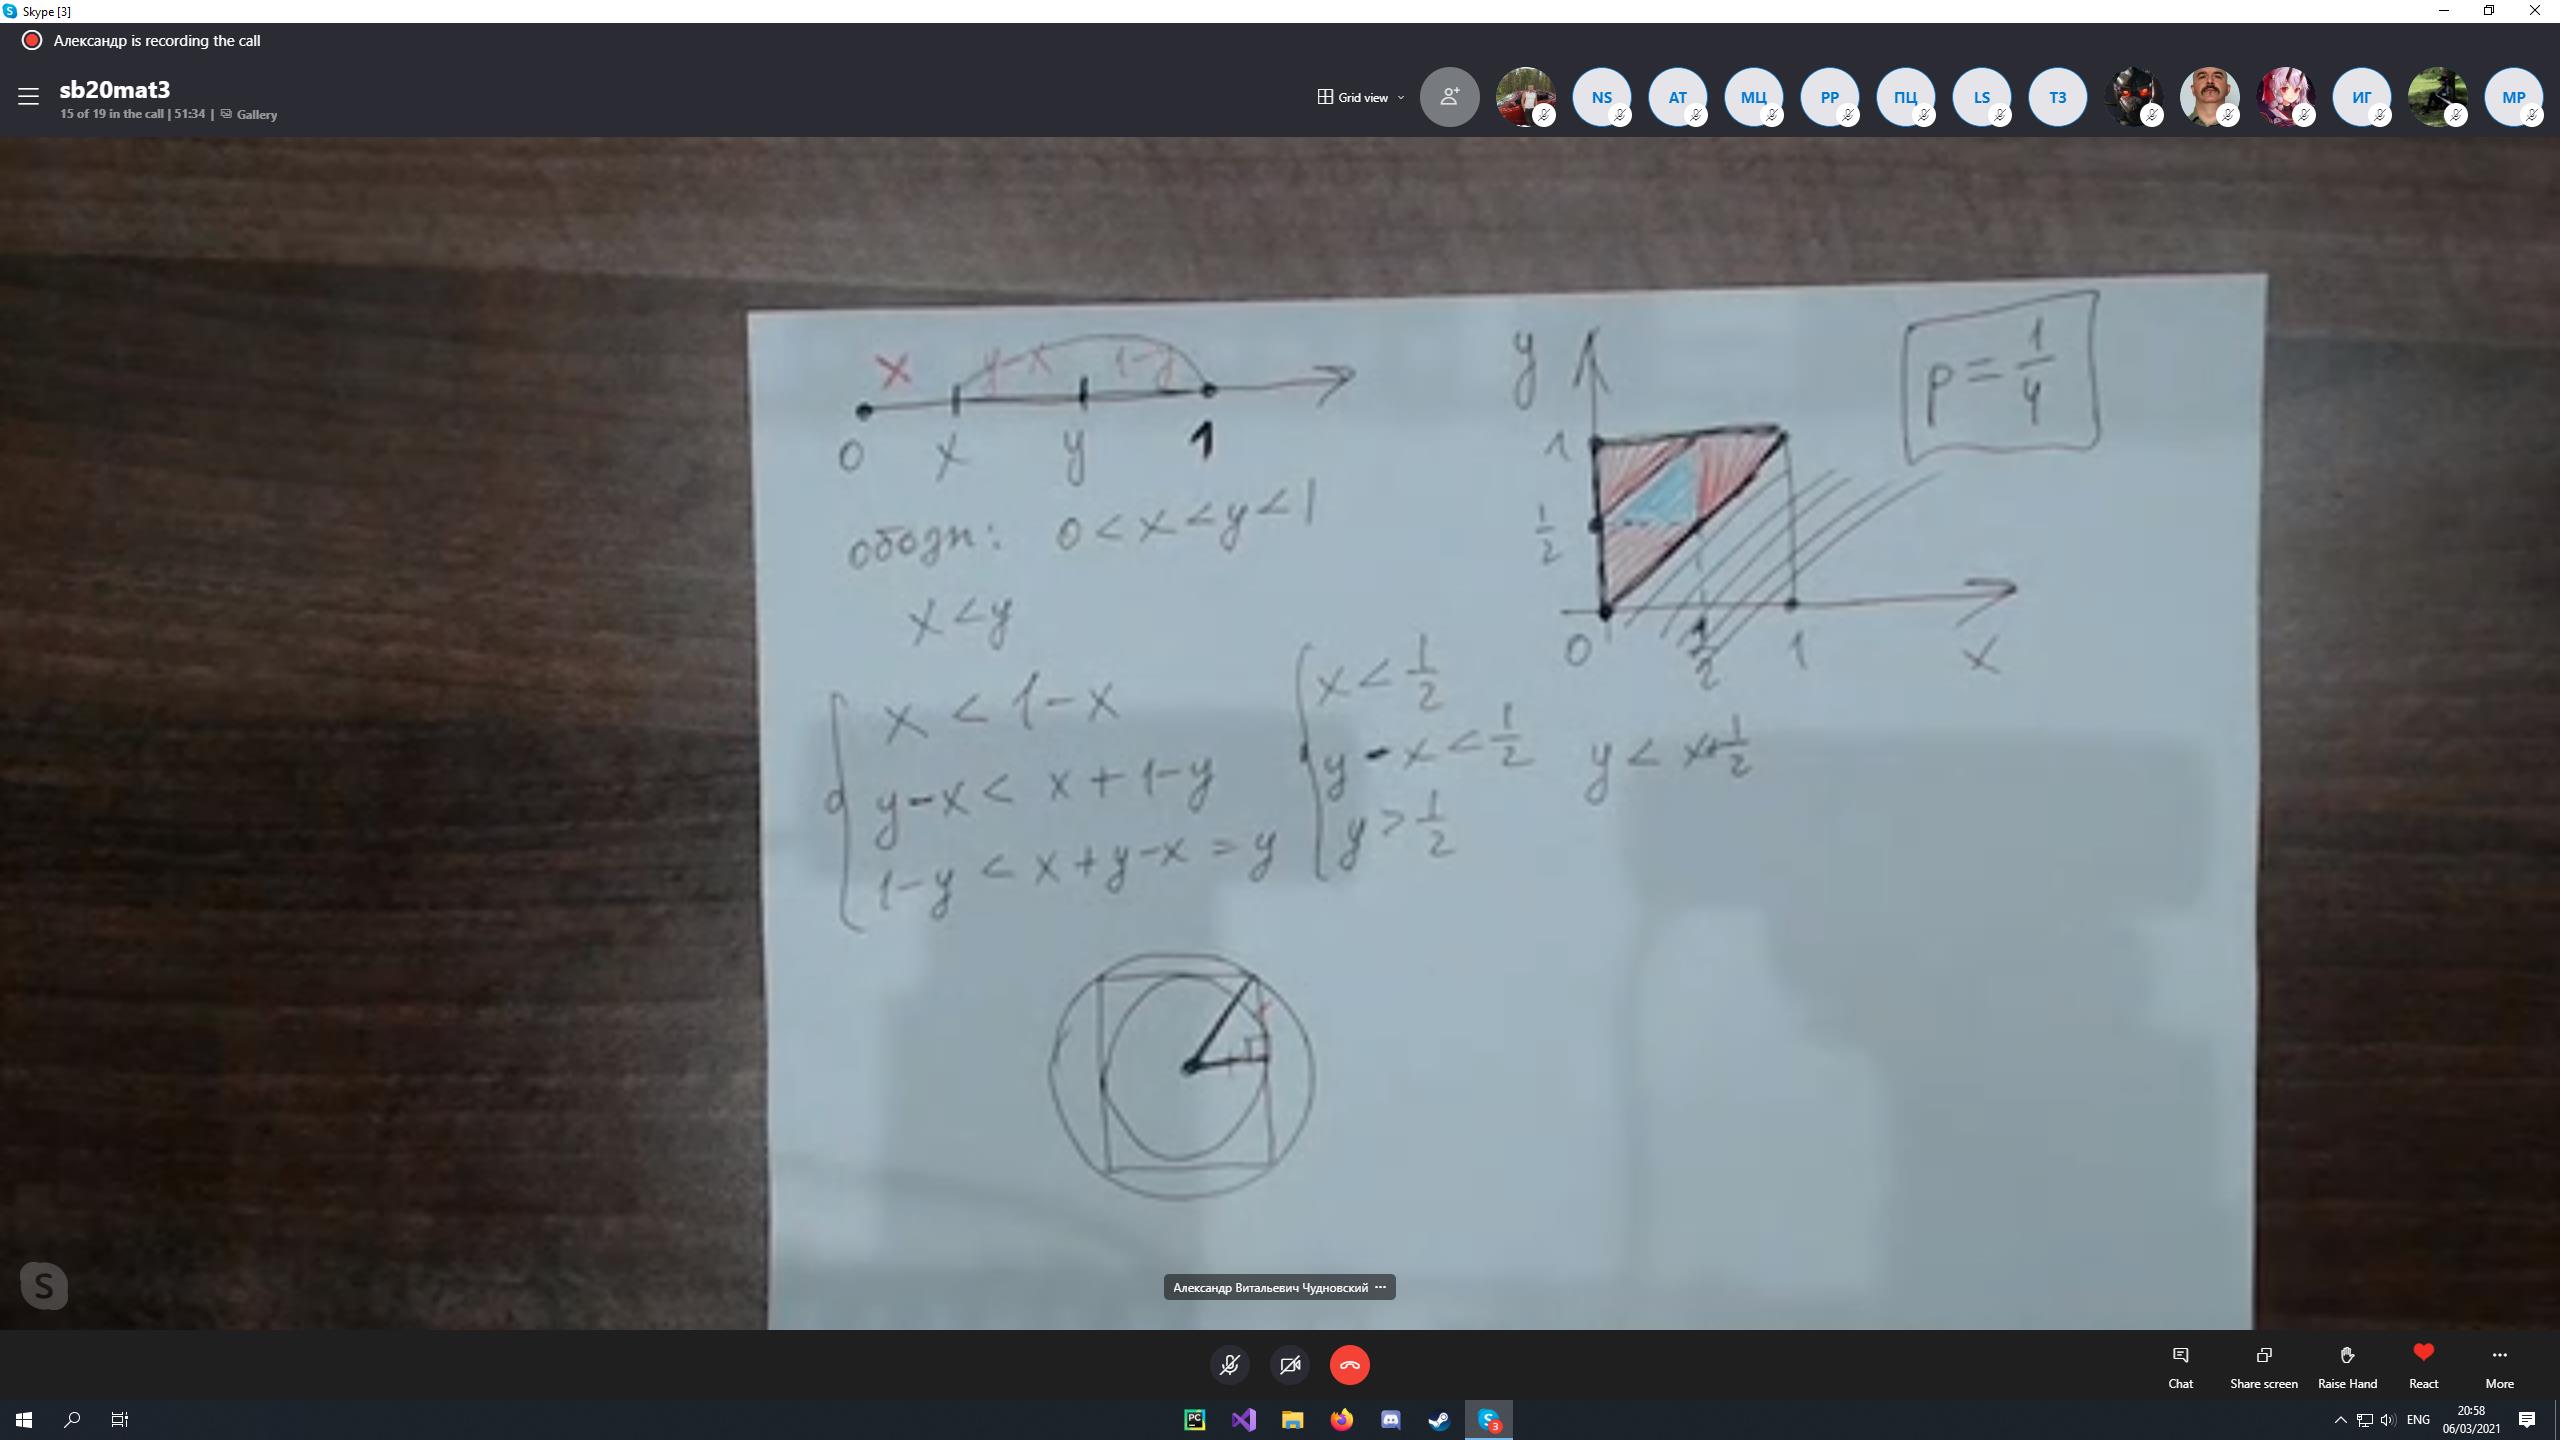 Skype [3]
Александр is recording the call
sb20mat3
15 of 19 in the call | 51:34 | Gallery
Grid view
NS
AT
МЦ
PP
ПЦ
LS
ТЗ
ИГ
MP
x y-x 1-y
0 x y 1
обозн: 0 < x < y < 1
x < y
x < 1-x
y-x < x+1-y
1-y < x+y-x = y
x < 1/2
y - x < 1/2 y < x+1/2
y > 1/2
y
1
1/2
0 1/2 1 x
p = 1/4
Александр Витальевич Чудновский
Chat
Share screen
Raise Hand
React
More
PC
ENG
20:58
06/03/2021